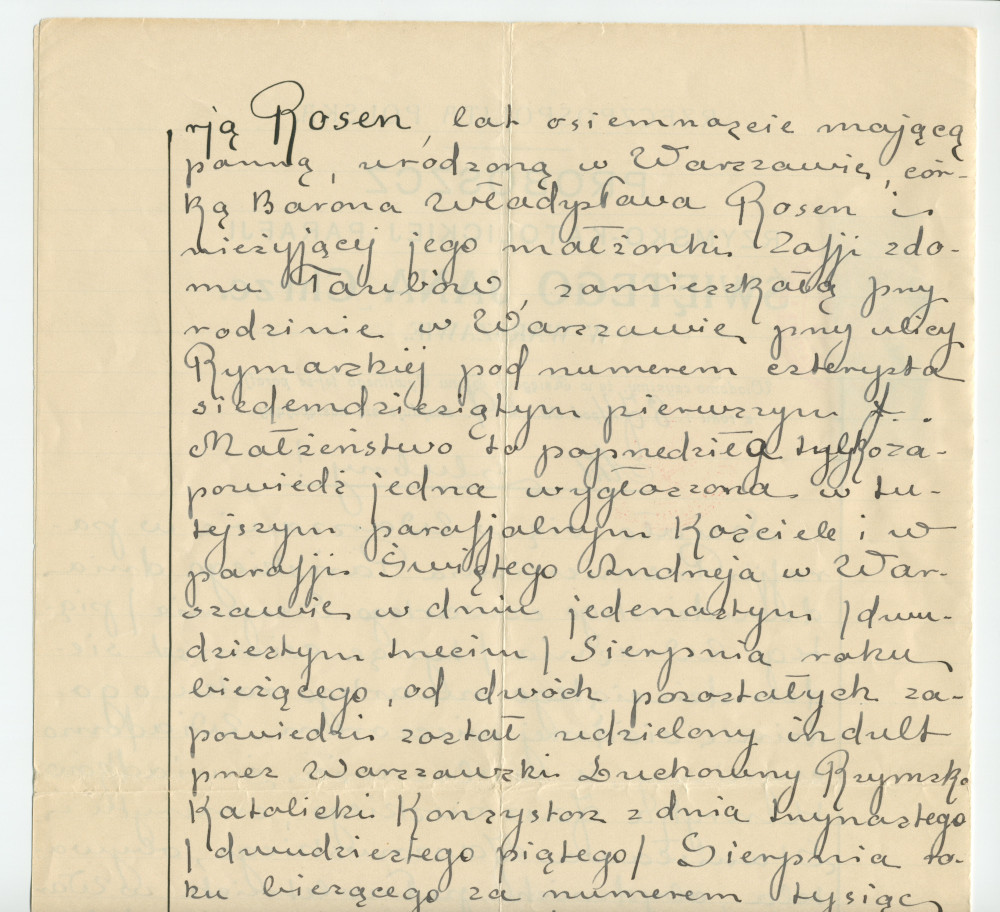 rją Rosen, lat osiemnaście mającą
panną, urodzoną w Warszawie, cór-
ką Barona Władysława Rosen i
nieżyjącej jego małżonki Zofji zdo-
mu Taubów, zamieszkałą przy
rodzinie w Warszawie przy ulicy
Rymarskiej pod numerem czterysta
siedemdziesiątym pierwszym
Małżeństwo to poprzedziła tylko za-
powiedź jedna wygłoszona w tu-
tejszym parafjalnym Kościele i w
parafji Świętego Andrzeja w War-
szawie w dniu jedenastym /dwu-
dziestym trzecim/ Sierpnia roku
bieżącego, od dwóch pozostałych za-
powiedzi został udzielony indult
przez Warszawski Duchowny Rzymsko
Katolicki Konsystorz z dnia trzynastego
/dwudziestego piątego/ Sierpnia ro-
ku bieżącego za numerem tysiąc